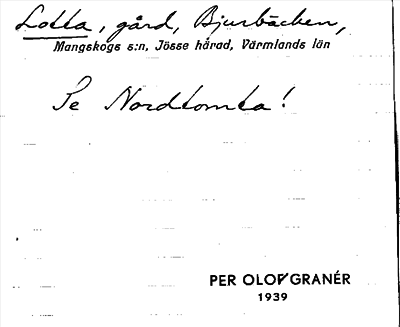 Lotta, gård, Bjurbäcken,
Mangskogs s:n, Jösse härad, Värmlands län
Se Nordtomta!
PER OLOF GRANÉR
1939